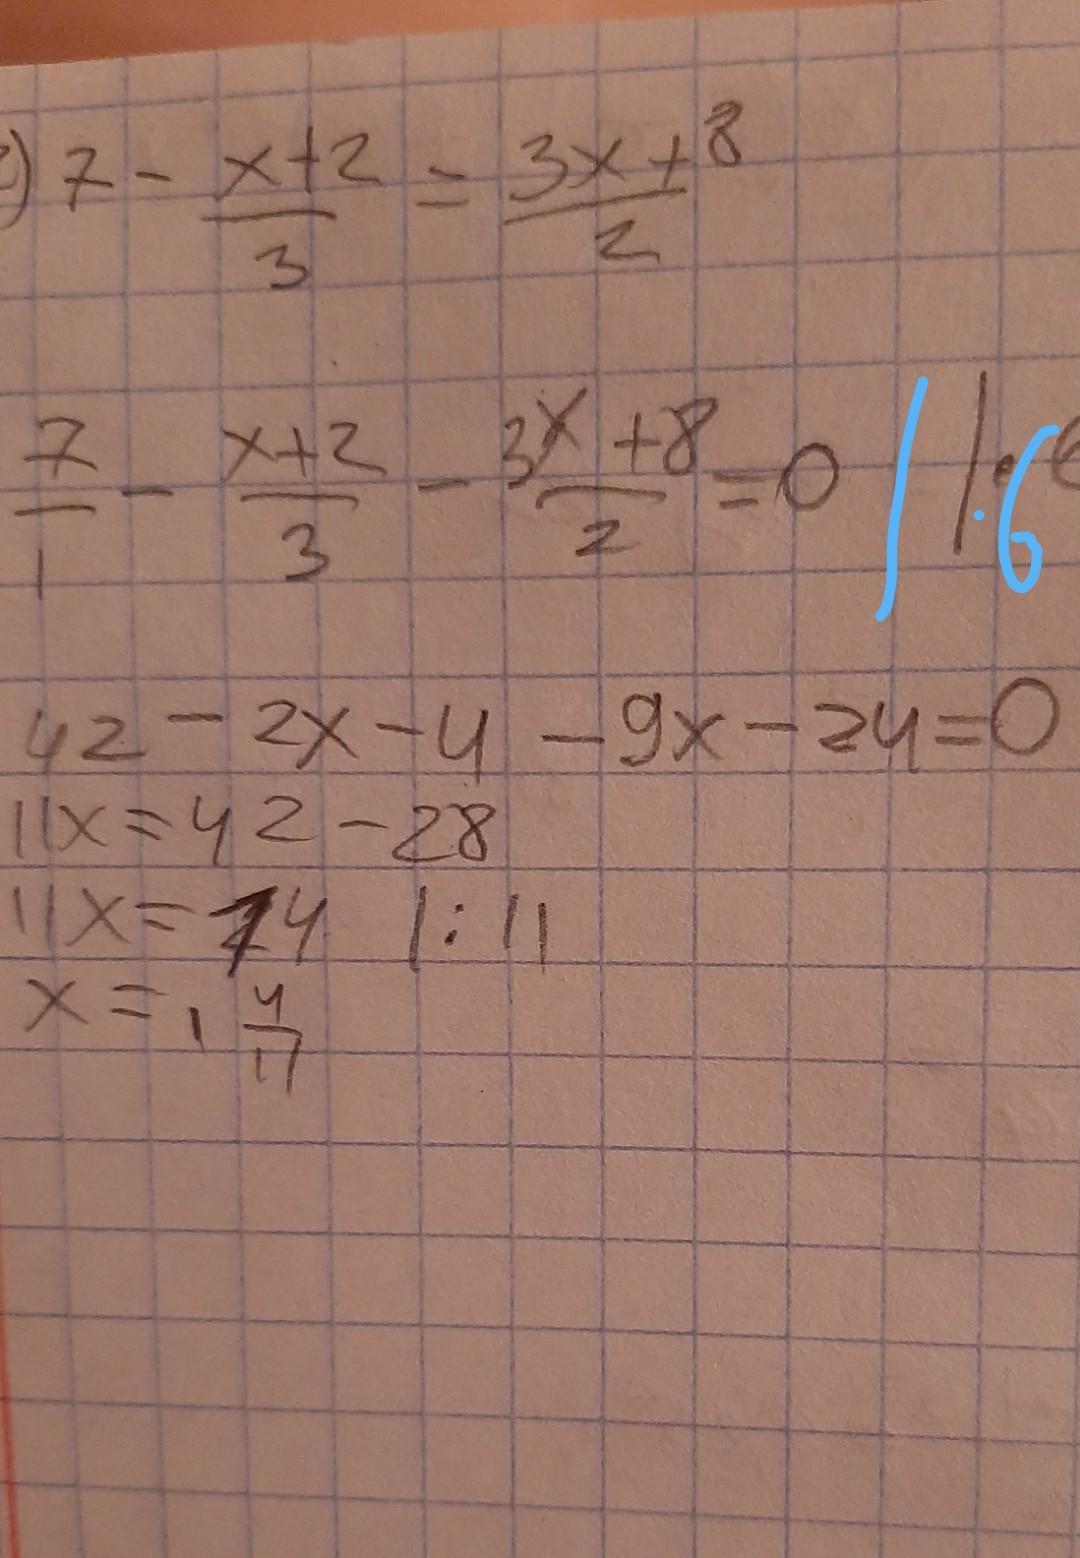 2) 7 - (x+2)/3 = (3x+8)/2
7/1 - (x+2)/3 - (3x+8)/2 = 0 | |·6 ·6
42 - 2x - 4 - 9x - 24 = 0
11x = 42 - 28
11x = 14 | : 11
x = 1 4/11